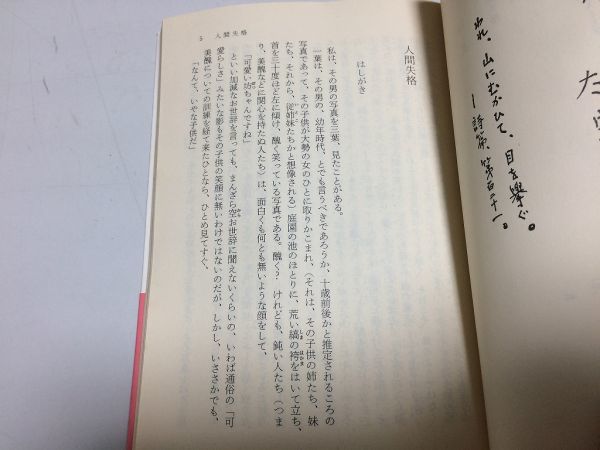 た
われ、山にむかひて、目を擧ぐ。
―詩篇、第百二十一。
5 人間失格
人間失格
はしがき
私は、その男の写真を三葉、見たことがある。
一葉は、その男の、幼年時代、とでも言うべきであろうか、十歳前後かと推定されるころの
写真であって、その子供が大勢の女のひとに取りかこまれ、（それは、その子供の姉たち、妹
たち、それから、従姉妹たちかと想像される）庭園の池のほとりに、荒い縞の袴をはいて立ち、
首を三十度ほど左に傾け、醜く笑っている写真である。醜く？　けれども、鈍い人たち（つま
り、美醜などに関心を持たぬ人たち）は、面白くも何とも無いような顔をして、
「可愛い坊ちゃんですね」
といい加減なお世辞を言っても、まんざら空お世辞に聞えないくらいの、いわば通俗の「可
愛らしさ」みたいな影もその子供の笑顔に無いわけではないのだが、しかし、いささかでも、
美醜についての訓練を経て来たひとなら、ひとめ見てすぐ、
「なんて、いやな子供だ」